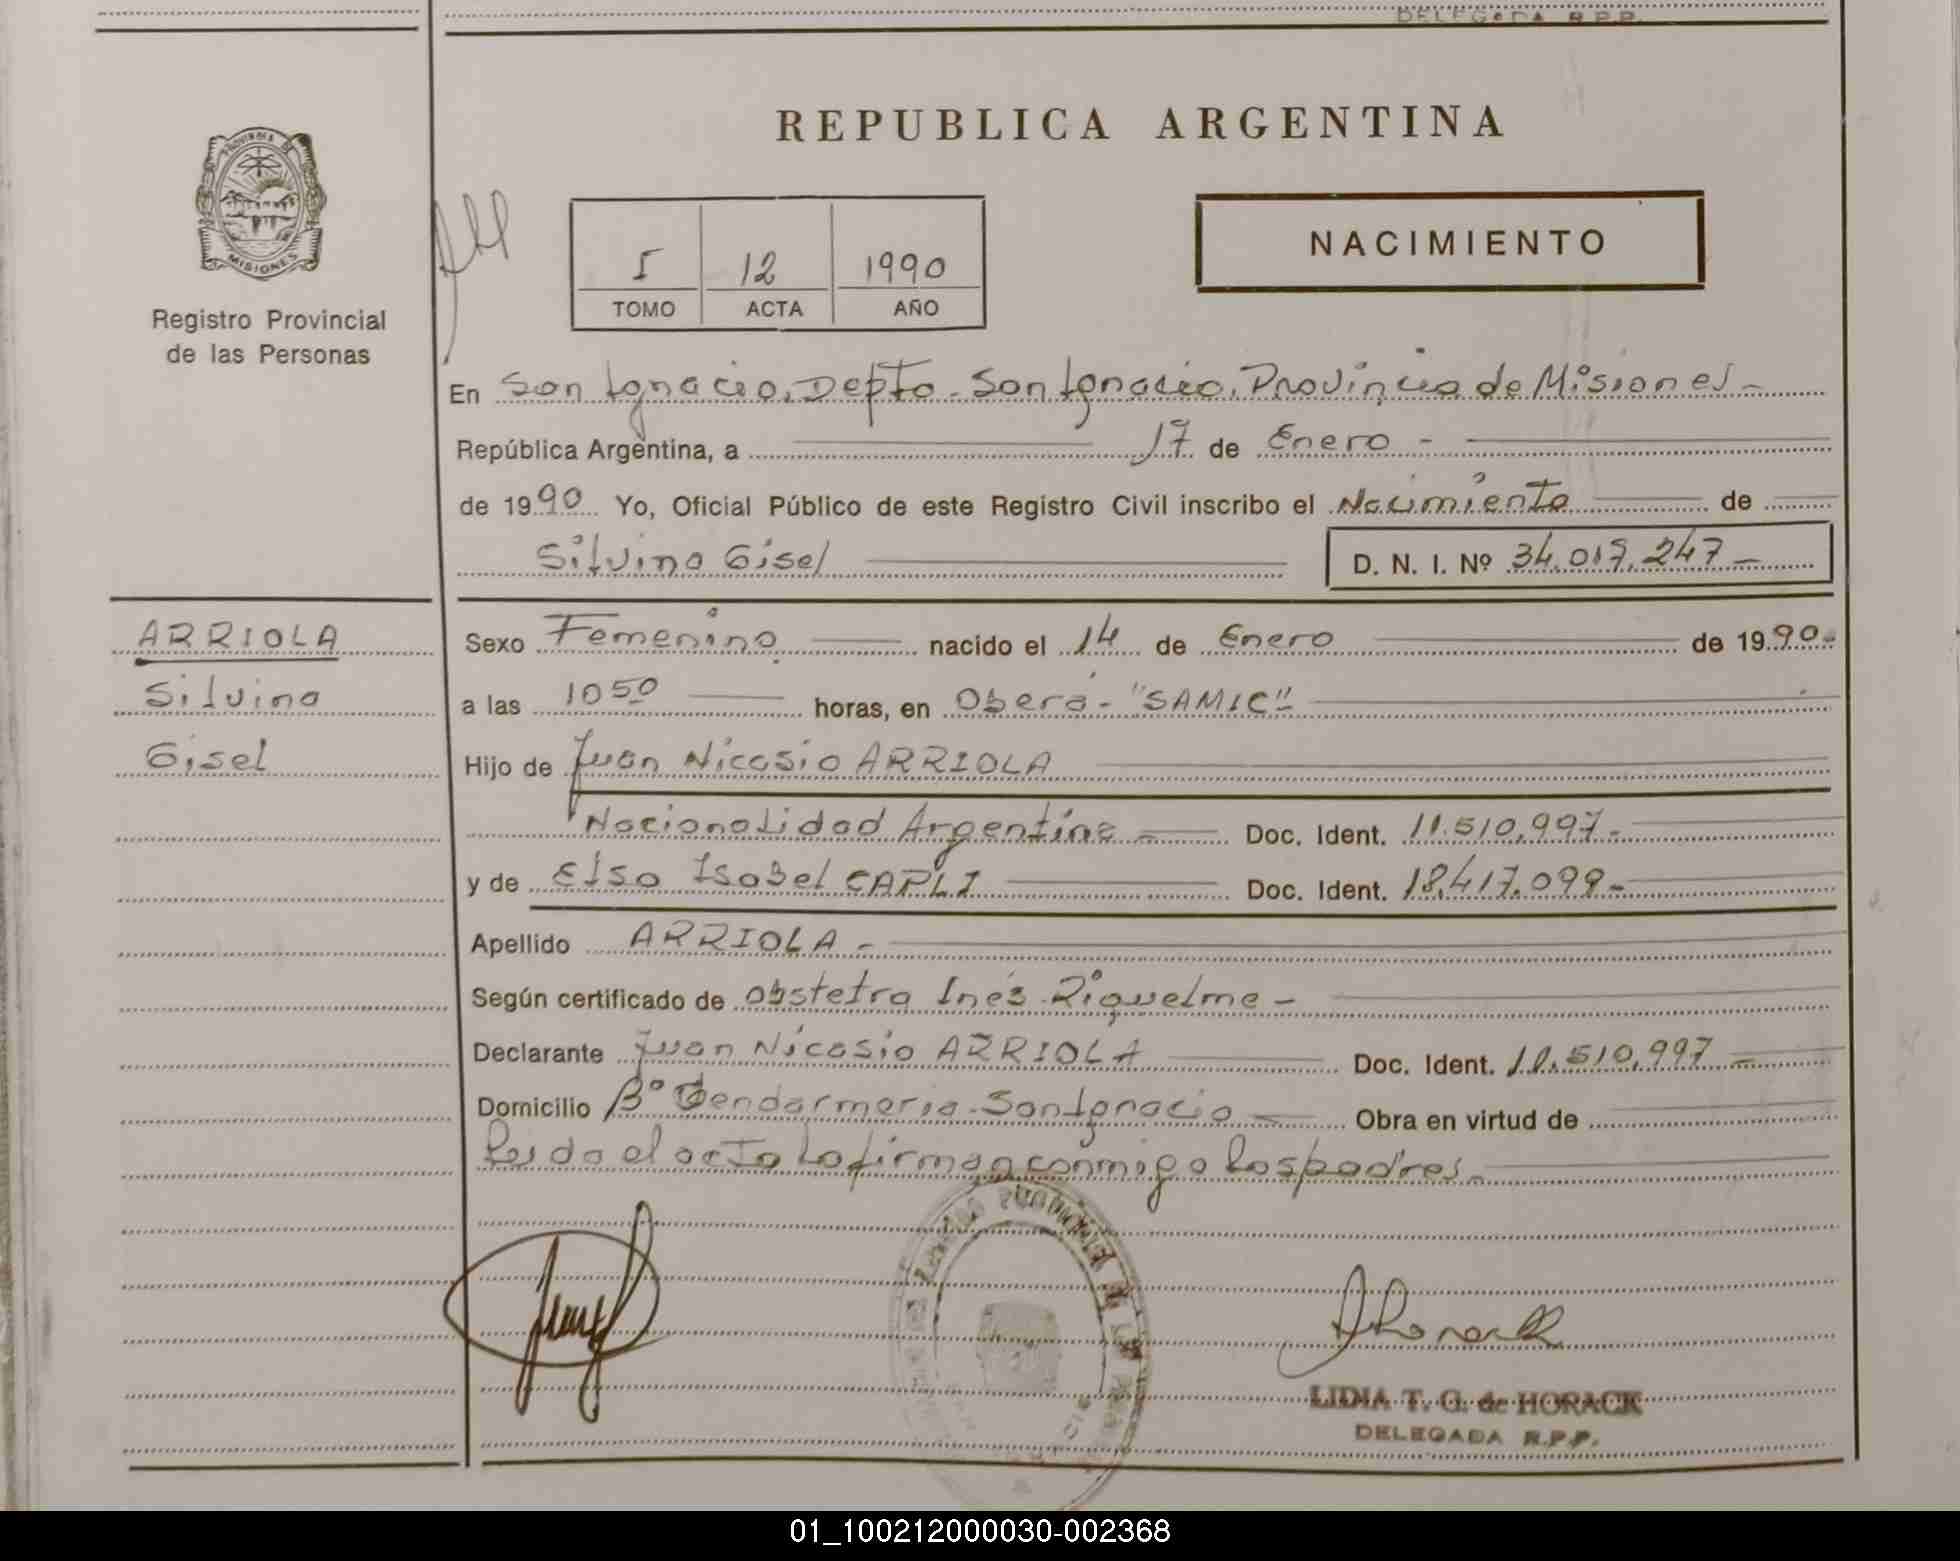 DELEGADA R.P.P.
REPUBLICA ARGENTINA
PROVINCIA DE
MISIONES
Registro Provincial
de las Personas
I 12 1990
TOMO ACTA AÑO
NACIMIENTO
En San Ignacio, Depto. San Ignacio, Provincia de Misiones -
República Argentina, a 17 de Enero -
de 1990 Yo, Oficial Público de este Registro Civil inscribo el Nacimiento de
Silvina Gisel D. N. I. Nº 34.017.247 -
ARRIOLA
Silvina
Gisel
Sexo Femenino nacido el 14 de Enero de 1990-
a las 10 50 horas, en Oberá - "SAMIC"
Hijo de Juan Nicasio ARRIOLA
Nacionalidad Argentina - Doc. Ident. 11.510.997-
y de Elsa Isabel CARLI Doc. Ident. 18.417.099-
Apellido ARRIOLA -
Según certificado de obstetra Inés Riquelme -
Declarante Juan Nicasio ARRIOLA Doc. Ident. 11.510.997 -
Domicilio Bº Gendarmeria - San Ignacio - Obra en virtud de
Leida el acta la firman conmigo los padres -
LIDIA T. G. de HORACK
DELEGADA R.P.P.
01_100212000030-002368